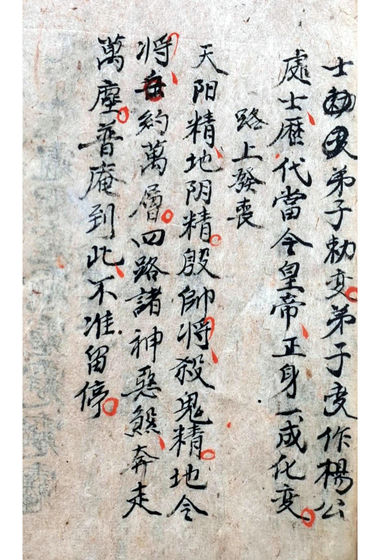 士勅变弟子勅变弟子变作楊公
處士歷代當今皇帝正身一成化变
路上發喪
天阳精地阴精殷帥將殺鬼精地令
將兵約萬層四路諸神惡煞奔走
萬塵普庵到此不准留停